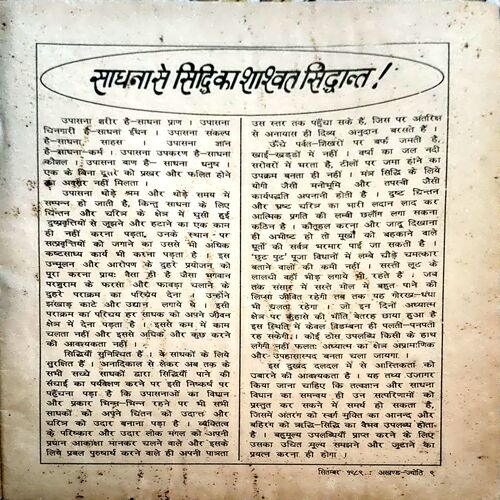 साधना से सिद्धि का शाश्वत सिद्धान्त !
उपासना शरीर है-साधना प्राण । उपासना
चिनगारी है-साधना ईंधन । उपासना संकल्प
है-साधना, साहस उपासना ज्ञान
है-साधना-कर्म । उपासना उपकरण है-साधना
कौशल । उपासना बाण है- साधना धनुष ।
एक के बिना दूसरे को प्रखर और फलित होने
का अवसर नहीं मिलता ।
उपासना थोड़े श्रम और थोड़े समय में
सम्पन्न हो जाती है, किन्तु साधना के लिए
चिंतन और चरित्र के क्षेत्र में घुसी हुई
दुष्प्रवृत्तियों से जूझने और हटाने का एक काम
ही नहीं करना पड़ता, उनके स्थान पर
सत्प्रवृत्तियों को जगाने का उससे भी अधिक
कष्टसाध्य कार्य भी करना पड़ता है । इस
उन्मूलन और आरोपण के दुहरे प्रयोजन को
पूरा करना प्रायः वैसा ही है जैसा भगवान
परशुराम के फरसा और फावड़ा चलाने के
दुहरे पराक्रम का परिचय देना । उन्होंने
झंखाड़ काटे और उद्यान लगाये थे । इसी
पराक्रम का परिचय हर साधक को अपने जीवन
क्षेत्र में देना पड़ता है । इससे कम में काम
चलता नहीं और इससे अधिक और कुछ करने
की आवश्यकता नहीं ।
सिद्धियाँ सुनिश्चित हैं । वे साधकों के लिये
सुरक्षित हैं । अनादिकाल से लेकर अब तक के
सभी सच्चे साधकों द्वारा सिद्धियाँ पाने की
सचाई का पर्यवेक्षण करने पर इसी निष्कर्ष पर
पहुँचना पड़ा है कि उपासनाओं का विधान
और प्रकार भिन्न-भिन्न रहने पर भी सभी
साधकों को अपुने चिंतन को उदात्त और
चरित्र को उदार बनाना पड़ा है । व्यक्तित्व
के परिष्कार और उदार लोक मंगल को अपनी
प्रधान आकांक्षा मानकर चलने वाले और इसके
लिये प्रबल पुरुषार्थ करने वाले ही अपनी पात्रता
उस स्तर तक पहुँचा सके हैं, जिस पर अंतरिक्ष
से अनायास ही दिव्य अनुदान बरसते हैं ।
ऊँचे पर्वत-शिखरों पर बर्फ जमती है,
खाई-खड्डों में नहीं । वर्षा का जल नदी
सरोवरों में भरता है, टीलों पर जमा होने का
उपक्रम बनता ही नहीं । मंत्र सिद्धि के लिये
योगी जैसी मनोभूमि और तपस्वी जैसी
कार्यपद्धति अपनानी होती है । दुष्ट चिन्तन
और भ्रष्ट चरित्र का भारी लदान लाद कर
आत्मिक प्रगति की लम्बी छलाँग लगा सकना
कठिन है । कौतूहल करना और जादू दिखाना
ही अभीष्ट हो तो मूर्खों को बहकाने वाले
धूर्तों की सर्वत्र भरमार पाई जा सकती है ।
'छूट पुट' पूजा विधानों में लम्बे चौड़े चमत्कार
बताने वालों की कमी नहीं । सस्ती लूट के
लालची वहीं भीड़ लगाये भी रहते हैं । जब
तक संसार में सस्ते मोल में बहुत पाने की
लिप्सा जीवित रहेगी तब तक यह गोरख-धंधा
भी चलता रहेगा । जो इन दिनों अध्यात्म
क्षेत्र पर कुहासे की भाँति बेतरह छाया हुआ है
इस स्थिति में केवल विडम्बना ही पलती-पनपती
रह सकेगी। कोई ठोस उपलब्धि किसी के हाथ
लगेगी नहीं फलतः अध्यात्म का क्षेत्र अप्रामाणिक
और उपहासास्पद बनता चला जायगा ।
इस दुखद दलदल में से आस्तिकता को
उबारने की आवश्यकता है । यह तथ्य उजागर
किया जाना चाहिए कि तत्वज्ञान और साधना
विधान का समन्वय ही उन सत्परिणामों को
प्रस्तुत कर सकने में समर्थ हो सकता है,
जिसमें अंतरंग को स्वर्ग मुक्ति का आनन्द और
बहिरंग को ऋद्धि-सिद्धि का वैभव उपलब्ध होता
है । बहुमूल्य उपलब्धियाँ प्राप्त करने के लिए
उसका उचित मूल्य समझने और जुटाने का
प्रयत्न करना ही होगा ।
सितम्बर १९८९ : अखण्ड-ज्योति ९